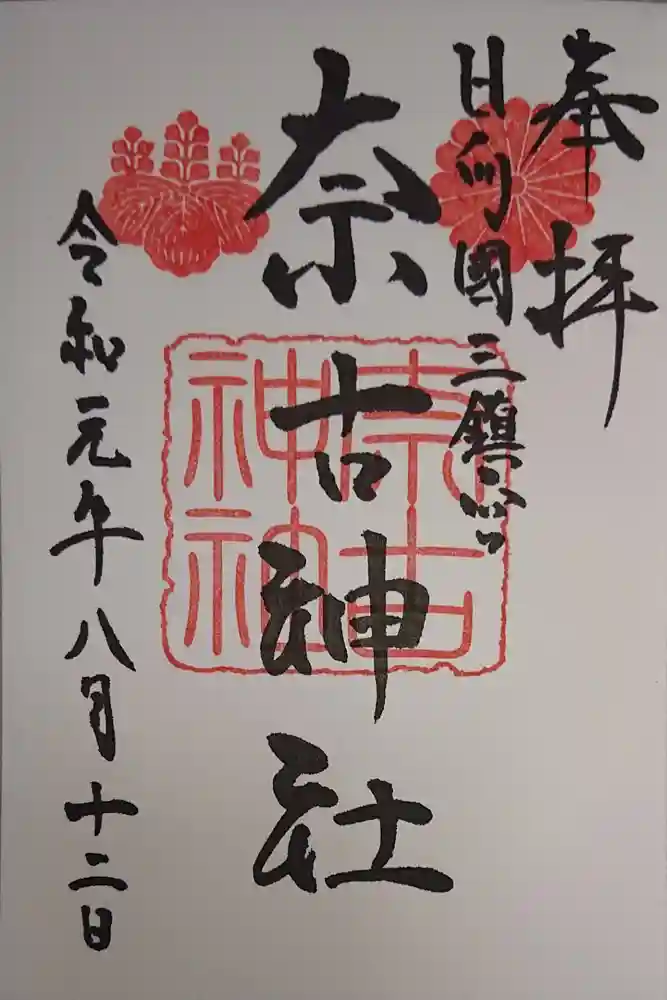 奉拝
日向國三鎮
奈古神社
奈古
神社
令和元年八月十二日